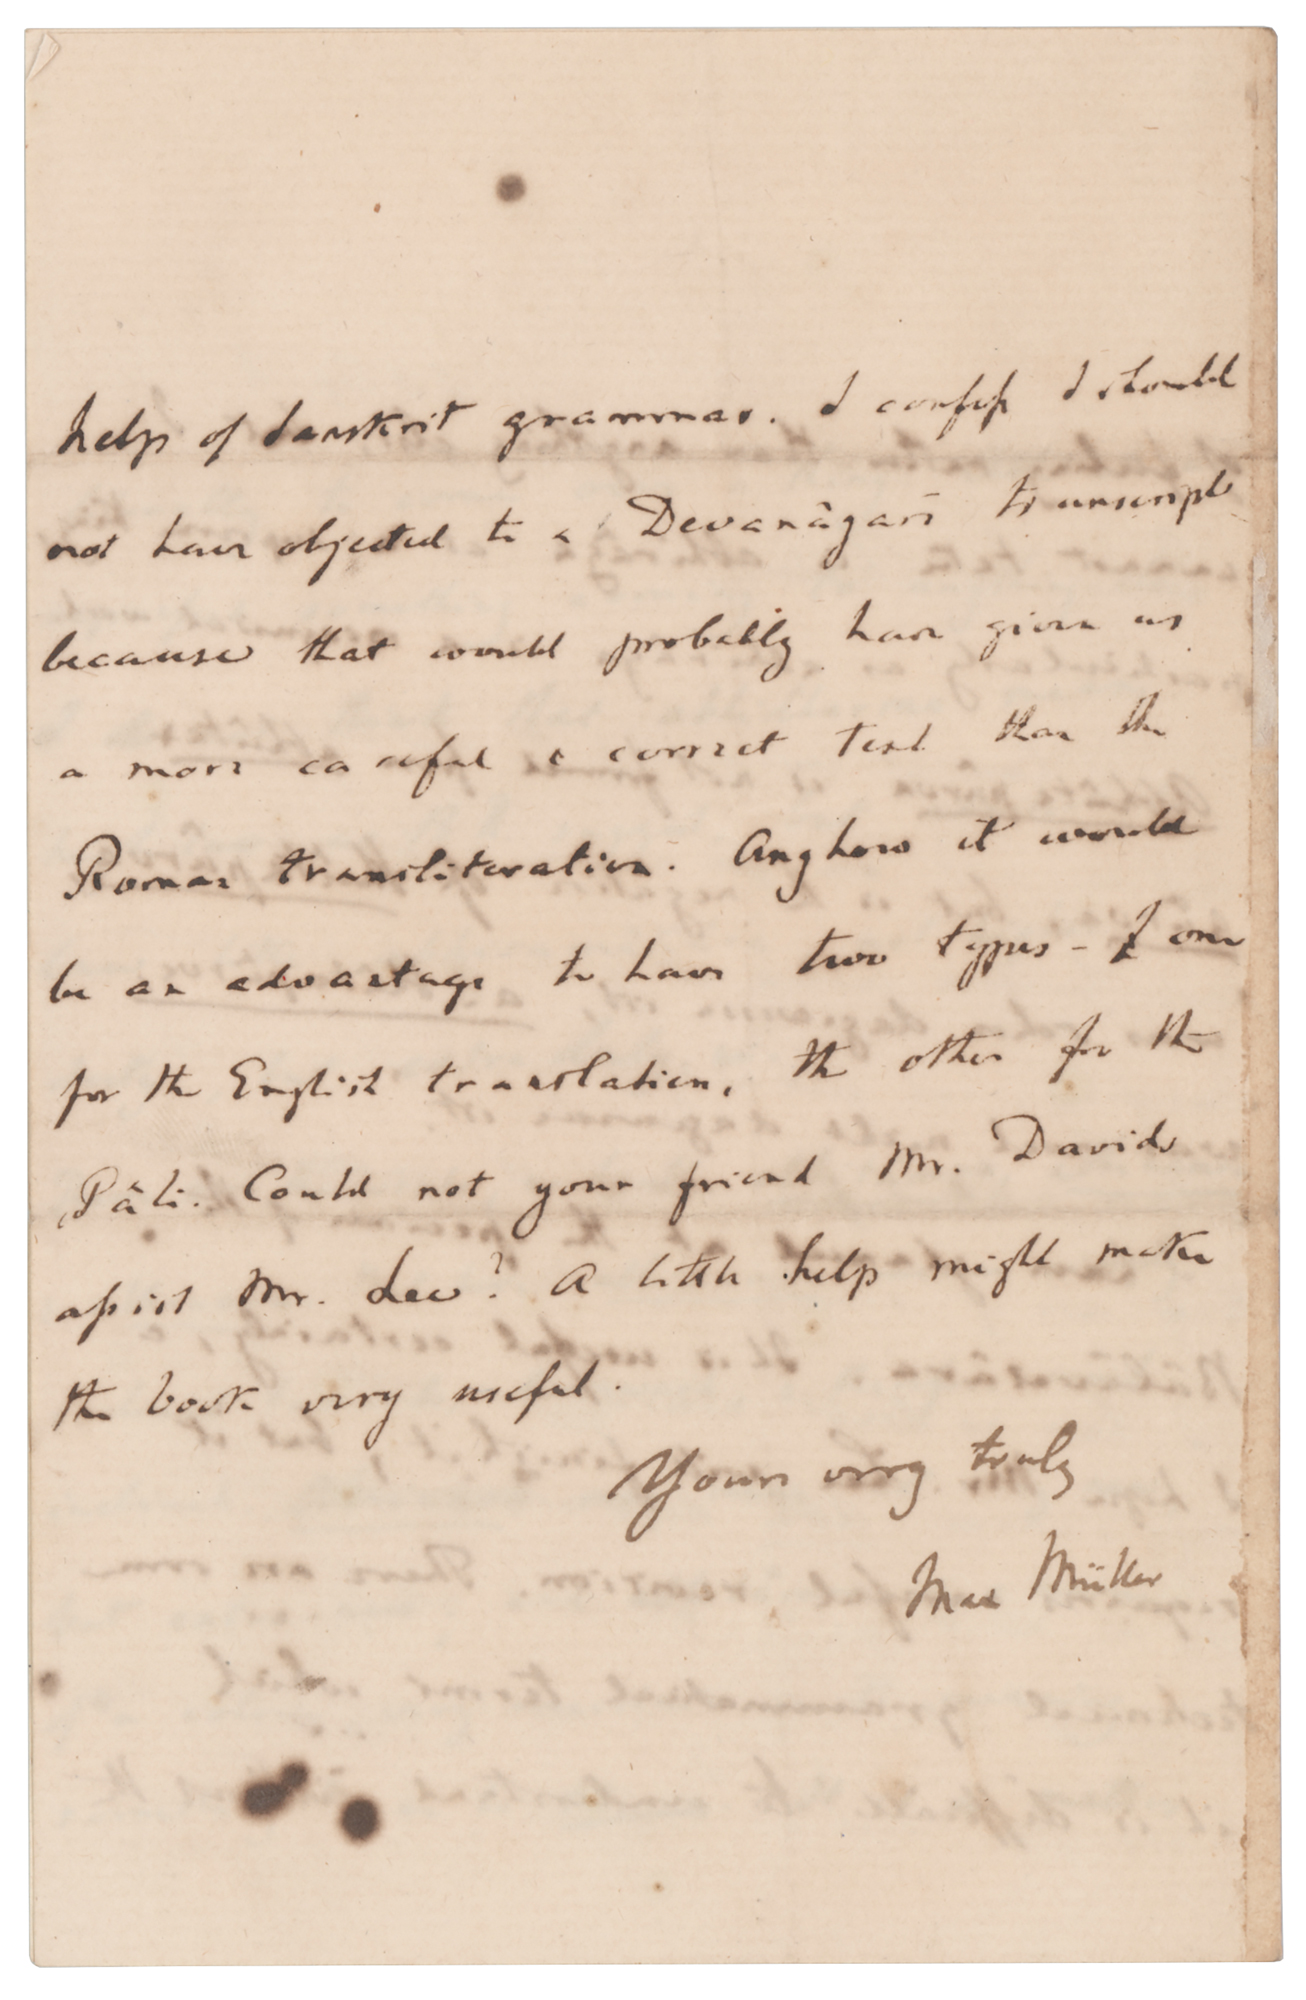 help of Sanskrit grammar. I confess I should
not have objected to a Devanâgarî transcript
because that would probably have given us
a more careful & correct text than the
Roman transliteration. Anyhow it would
be an advantage to have two types - one
for the English translation, the other for the
Pâli. Could not your friend Mr. Davids
assist Mr. Lee? A little help might make
the book very useful.
Yours very truly
Max Müller